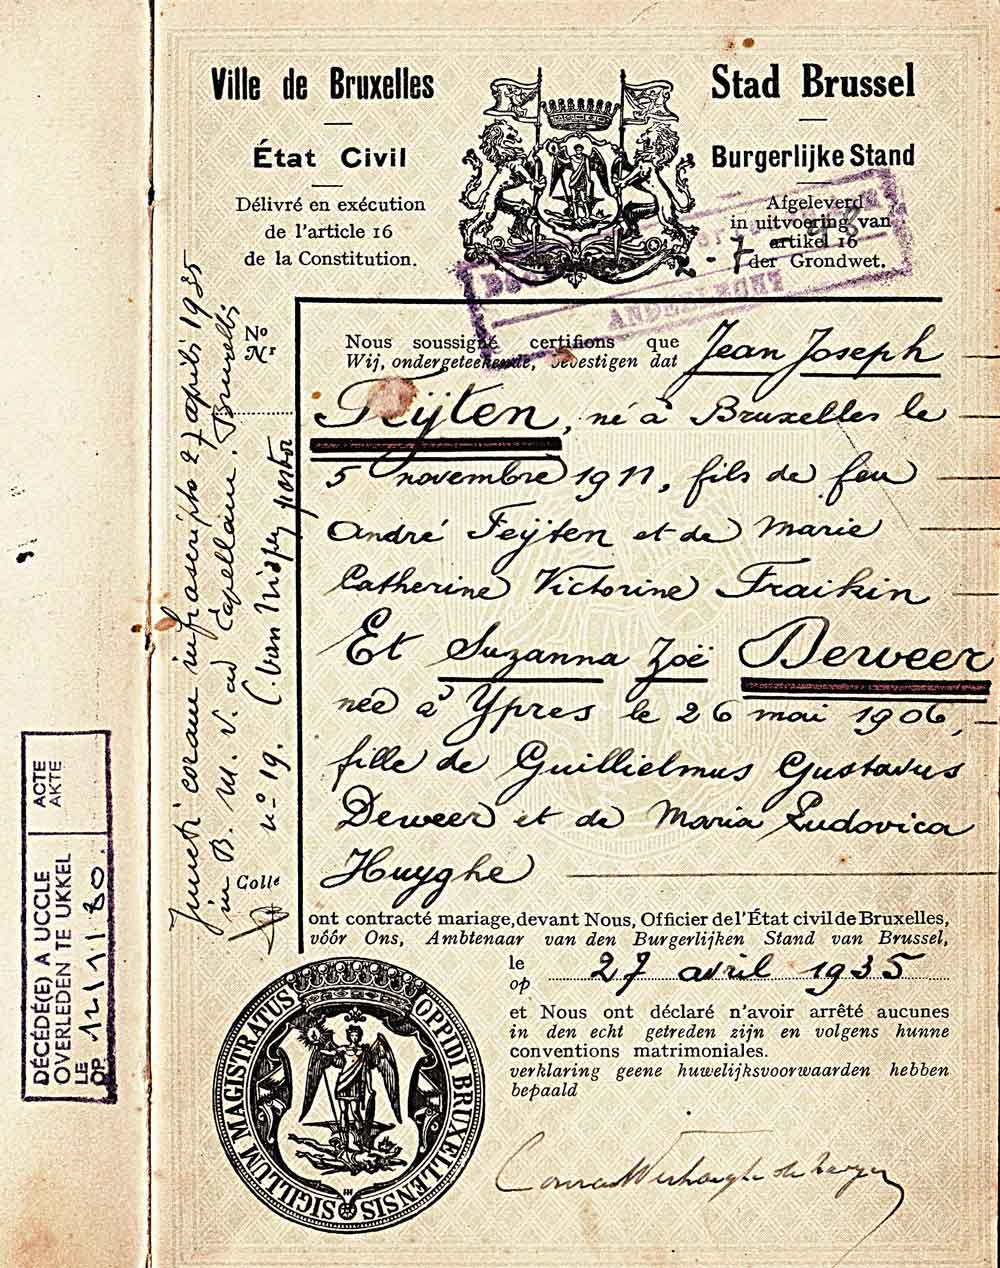 Ville de Bruxelles
État Civil
Délivré en exécution
de l'article 16
de la Constitution.
Stad Brussel
Burgerlijke Stand
Afgeleverd
in uitvoering van
artikel 16
der Grondwet.
ANDERLECHT
No
Nr
Nous soussigné certifions que
Wij, ondergeteekende, bevestigen dat
Jean Joseph
Feÿten, né à Bruxelles le
5 novembre 1911, fils de feu
André Feÿten et de Marie
Catherine Victorine Fraikin
Et Suzanna Zoë Deweer
née à Ypres le 26 mai 1906,
fille de Guillielmus Gustavus
Deweer et de Maria Ludovica
Huyghe
Collé
ont contracté mariage, devant Nous, Officier de l'État civil de Bruxelles,
vóór Ons, Ambtenaar van den Burgerlijken Stand van Brussel,
le
op
27 avril 1935
et Nous ont déclaré n'avoir arrêté aucunes
in den echt getreden zijn en volgens hunne
conventions matrimoniales.
verklaring geene huwelijksvoorwaarden hebben
bepaald
SIGILLUM MAGISTRATUS OPPIDI BRUXELLENSIS
Juncti coram infrascripto 27 aprilis 1935
in B. M. V. ad Capellam. Bruxellis
n° 19. pastor
DÉCÉDÉ(E) A UCCLE
OVERLEDEN TE UKKEL
LE
OP
12/11/80.
ACTE
AKTE